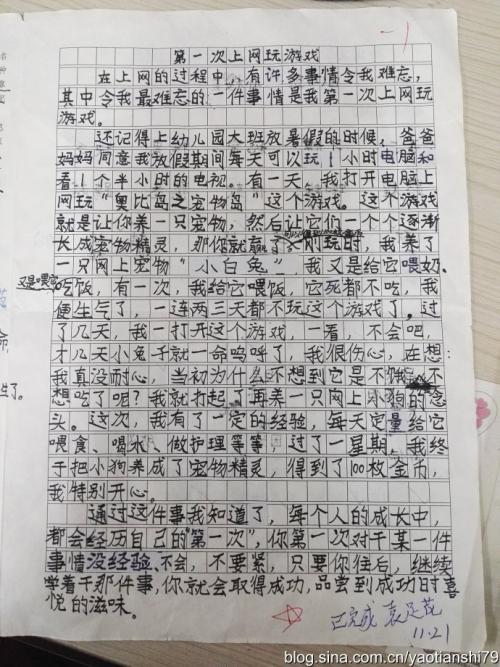 第一次上网玩游戏
在上网的过程中，有许多事情令我难忘，
其中令我最难忘的一件事情是我第一次上网玩
游戏。
还记得上幼儿园大班放暑假的时候，爸爸
妈妈同意我放假期间每天可以玩1小时电脑和
看1个半小时的电视。有一天，我打开电脑上
网玩“奥比岛之宠物岛”这个游戏。这个游戏
就是让你养一只宠物，然后让它们一个个逐渐
长成宠物精灵，那你就赢了。刚玩时，我养了
一只网上宠物“小白兔”，我又是给它喂奶。
又是喂它
吃饭，有一次，我给它喂饭，它死都不吃，我
便生气了，一连两三天都不玩这个游戏了。过
了几天，我一打开这个游戏，一看，不会吧，
才几天小兔子就一命呜呼了，我很伤心，在想：
我真没耐心，当初为什么不想到它是不饿不
想吃了呢？我就打起了再养一只网上小狗的念
头。这次，我有了一定的经验，每天定量给它
喂食、喝水、做护理等等，过了一星期，我终
于把小狗养成了宠物精灵，得到了100枚金币，
我特别开心。
通过这件事我知道了，每个人的成长中，
都会经历自己的“第一次”，你第一次对于某一件
事情没经验、不会，不要紧，只要你往后，继续
学着干那件事，你就会取得成功，品尝到成功时喜
悦的滋味。
已完成
11.21
blog.sina.com.cn/yaotianshi79